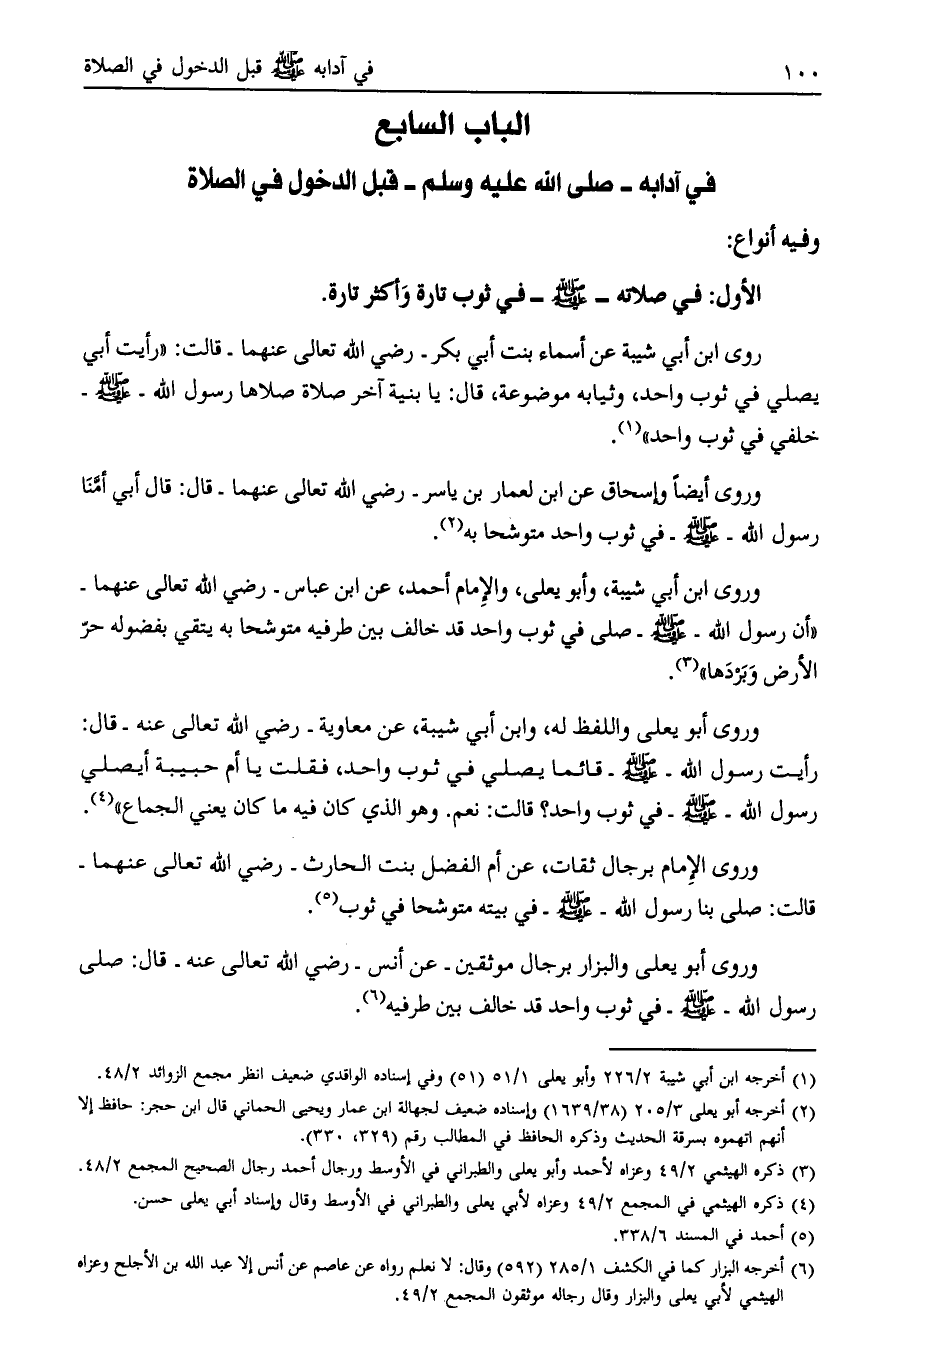 ١٠٠ في آدابه ﷺ قبل الدخول في الصلاة
الباب السابع
في آدابه ـ صلى الله عليه وسلم ـ قبل الدخول في الصلاة
وفيه أنواع:
الأول: في صلاته ـ ﷺ ـ في ثوب تارة وَأكثر تارة.
روى ابن أبي شيبة عن أسماء بنت أبي بكر ـ رضي الله تعالى عنهما ـ قالت: «رأيت أبي
يصلي في ثوب واحد، وثيابه موضوعة، قال: يا بنية آخر صلاة صلاها رسول الله ـ ﷺ ـ
خلفي في ثوب واحد»(١).
وروى أيضاً وإسحاق عن ابن لعمار بن ياسر ـ رضي الله تعالى عنهما ـ قال: قال أبي أمَّنَا
رسول الله ـ ﷺ ـ في ثوب واحد متوشحا به(٢).
وروى ابن أبي شيبة، وأبو يعلى، والإمام أحمد، عن ابن عباس ـ رضي الله تعالى عنهما ـ
«أن رسول الله ـ ﷺ ـ صلى في ثوب واحد قد خالف بين طرفيه متوشحا به يتقي بفضوله حرّ
الأرض وَبَرْدَها»(٣).
وروى أبو يعلى واللفظ له، وابن أبي شيبة، عن معاوية ـ رضي الله تعالى عنه ـ قال:
رأيت رسول الله ـ ﷺ ـ قائما يصلي في ثوب واحد، فقلت يا أم حبيبة أيصلي
رسول الله ـ ﷺ ـ في ثوب واحد؟ قالت: نعم. وهو الذي كان فيه ما كان يعني الجماع»(٤).
وروى الإمام برجال ثقات، عن أم الفضل بنت الحارث ـ رضي الله تعالى عنهما ـ
قالت: صلى بنا رسول الله ـ ﷺ ـ في بيته متوشحا في ثوب(٥).
وروى أبو يعلى والبزار برجال موثقين ـ عن أنس ـ رضي الله تعالى عنه ـ قال: صلى
رسول الله ـ ﷺ ـ في ثوب واحد قد خالف بين طرفيه(٦).
(١) أخرجه ابن أبي شيبة ٢٢٦/٢ وأبو يعلى ٥١/١ (٥١) وفي إسناده الواقدي ضعيف انظر مجمع الزوائد ٤٨/٢.
(٢) أخرجه أبو يعلى ٢٠٥/٣ (١٦٣٩/٣٨) وإسناده ضعيف لجهالة ابن عمار ويحيى الحماني قال ابن حجر: حافظ إلا
أنهم اتهموه بسرقة الحديث وذكره الحافظ في المطالب رقم (٣٢٩، ٣٣٠).
(٣) ذكره الهيثمي ٤٩/٢ وعزاه لأحمد وأبو يعلى والطبراني في الأوسط ورجال أحمد رجال الصحيح المجمع ٤٨/٢.
(٤) ذكره الهيثمي في المجمع ٤٩/٢ وعزاه لأبي يعلى والطبراني في الأوسط وقال وإسناد أبي يعلى حسن.
(٥) أحمد في المسند ٣٣٨/٦.
(٦) أخرجه البزار كما في الكشف ٢٨٥/١ (٥٩٢) وقال: لا نعلم رواه عن عاصم عن أنس إلا عبد الله بن الأجلح وعزاه
الهيثمي لأبي يعلى والبزار وقال رجاله موثقون المجمع ٤٩/٢.